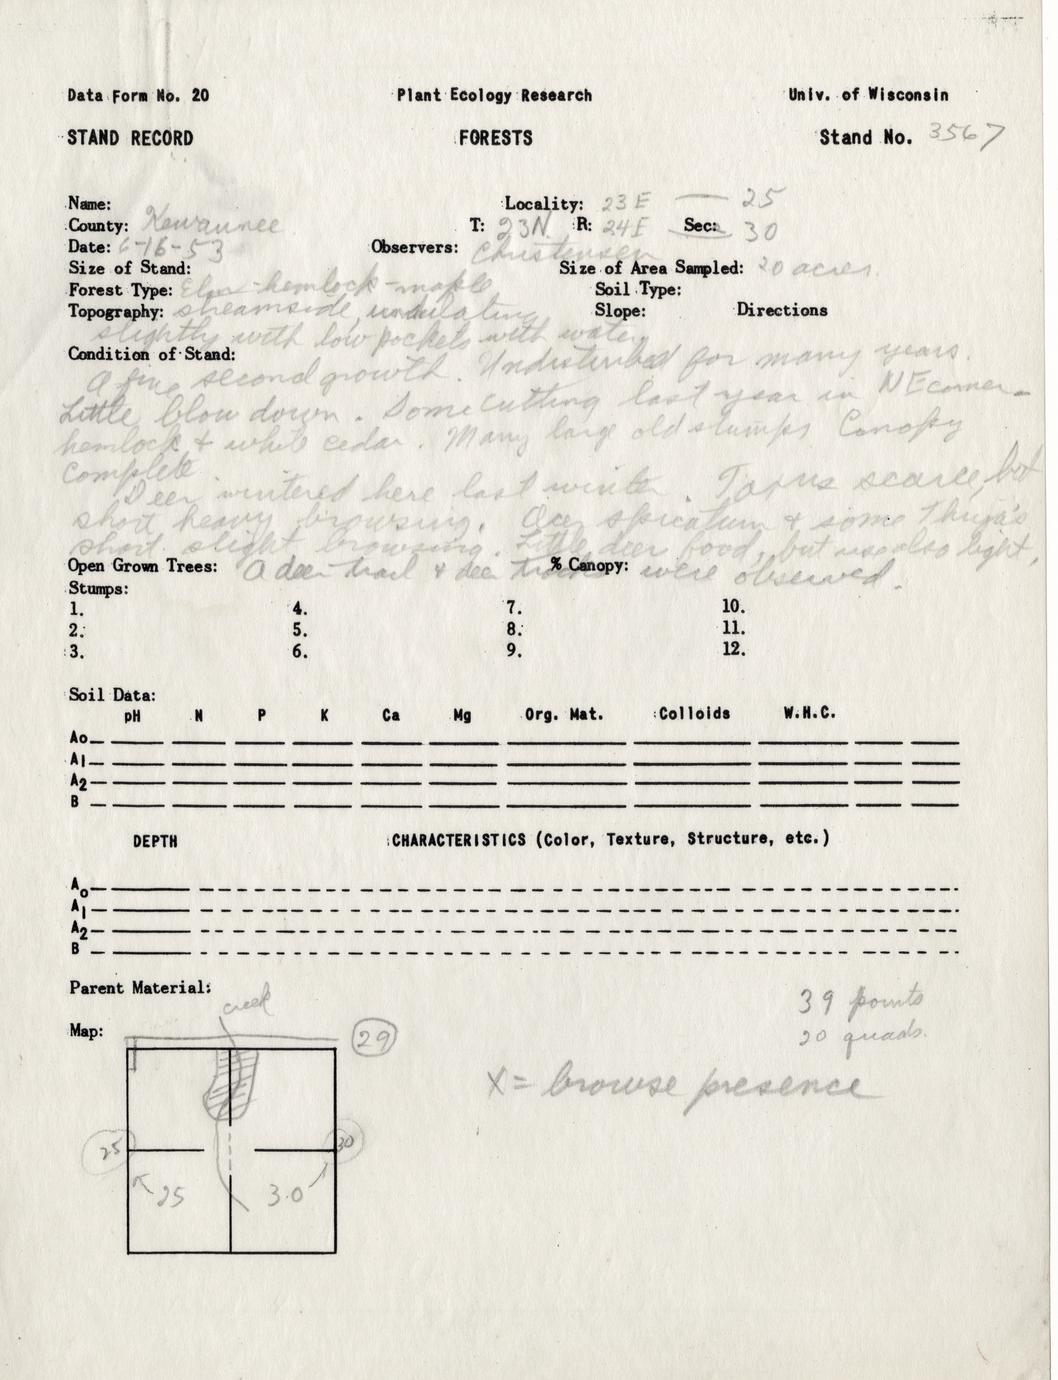 Data Form No. 20 Plant Ecology Research Univ. of Wisconsin
STAND RECORD FORESTS Stand No. 3567
Name: Locality: 23 E — 25
County: Kewaunee T: 23N R: 24E Sec: 30
Date: 6-16-53 Observers: Christensen
Size of Stand: Size of Area Sampled: 20 acres.
Forest Type: Elm-hemlock-maple Soil Type:
Topography: streamside, undulating Slope: Directions
slightly with low pockets with water.
Condition of Stand:
A fine second growth. Undisturbed for many years.
Little blow down. Some cutting last year in NE corner –
hemlock & white cedar. Many large old stumps Canopy
complete.
Deer wintered here last winter. Taxus scarce, but
short heavy browsing. Acer spicatum & some Thuja's
short slight browsing. Little deer food, but use also light,
Open Grown Trees: A deer trail & deer tracks % Canopy: were observed.
Stumps:
1. 4. 7. 10.
2. 5. 8. 11.
3. 6. 9. 12.
Soil Data:
pH N P K Ca Mg Org. Mat. Colloids W.H.C.
Ao
A1
A2
B
DEPTH CHARACTERISTICS (Color, Texture, Structure, etc.)
Ao
A1
A2
B
Parent Material:
creek
39 points
Map: 29 20 quads.
X = browse presence
25 30
25 30